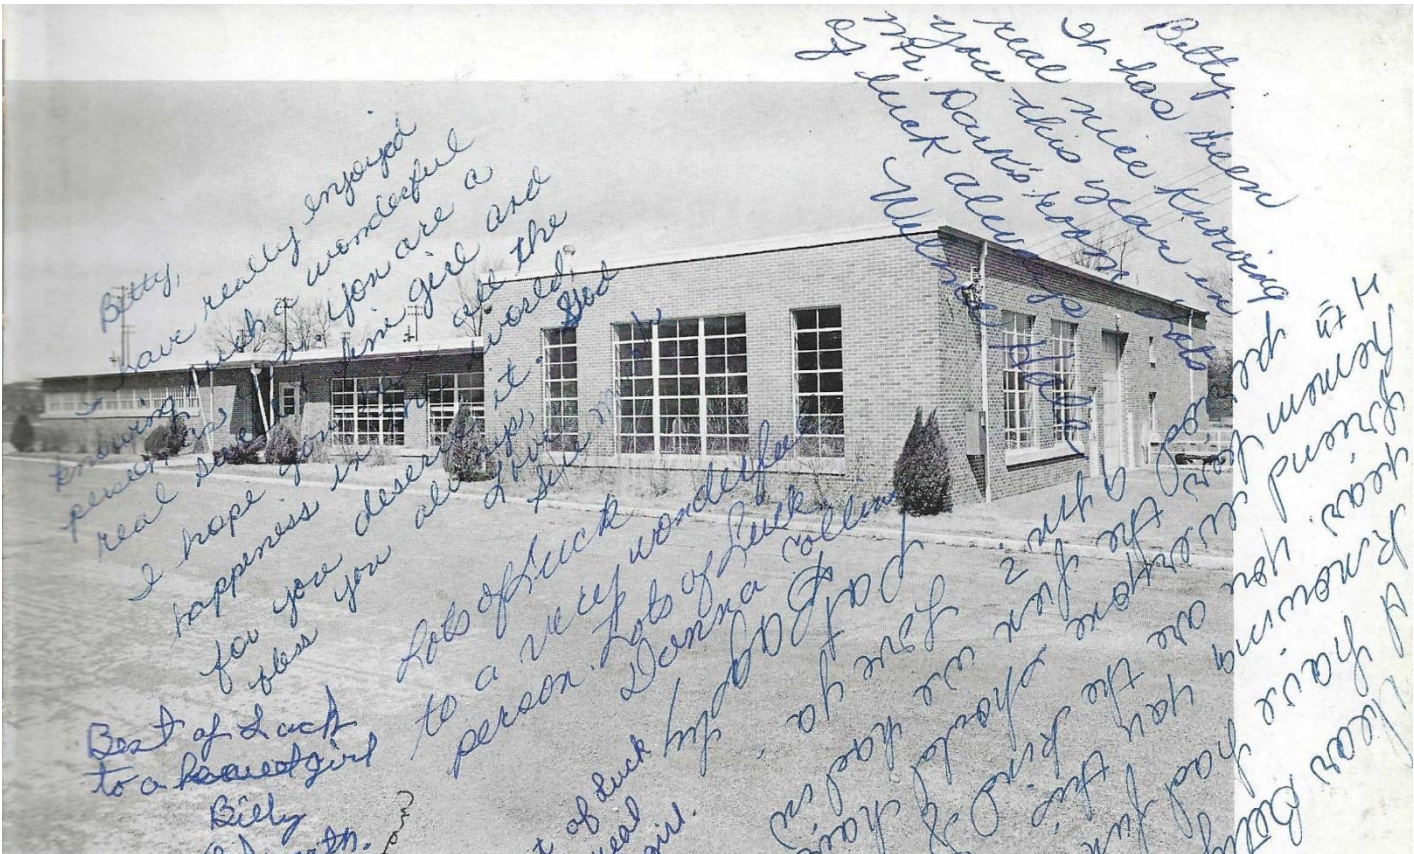 Betty,
I have really enjoyed
knowing such a wonderful
person. You are a
real fine girl and
I hope you all the
happiness in world,
for you deserve it. God
bless you always,
Love
Sue
Betty,
It has been
real nice knowing
you this year in
Mr. Dark's room. Lots
of luck always
Wilma Hall
Lots of Luck
to a very wonderful
person. Lots of Luck
Donna Collins
Best of Luck
to a sweet girl
Billy
of Luck
real
girl.
Dear Betty
I have had fun
knowing you the
years. You are the kind of
friend everyone should have
Remember the fun we had in
4th period gym
Love ya
Pat